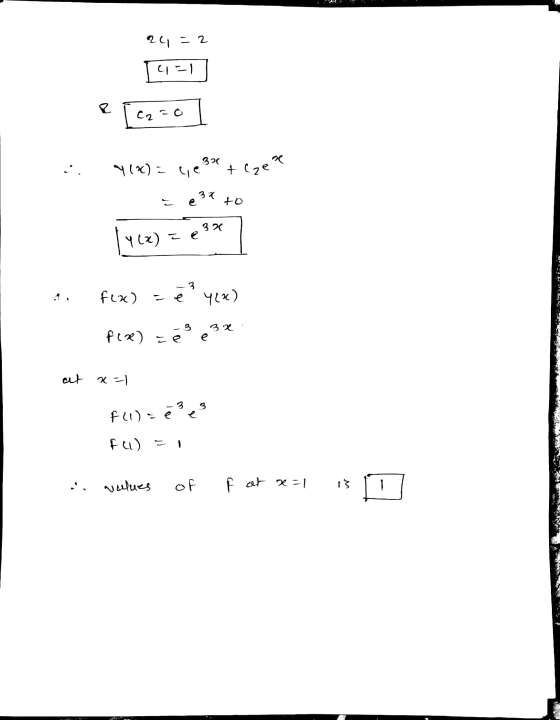 2c₁ = 2
c₁ = 1
& c₂ = 0
∴ y(x) = c₁e^{3x} + c₂e^x
= e^{3x} + 0
y(x) = e^{3x}
∴ f(x) = e^{-3} y(x)
f(x) = e^{-3} e^{3x}
at x = 1
f(1) = e^{-3} e^3
f(1) = 1
∴ values of f at x = 1 is 1